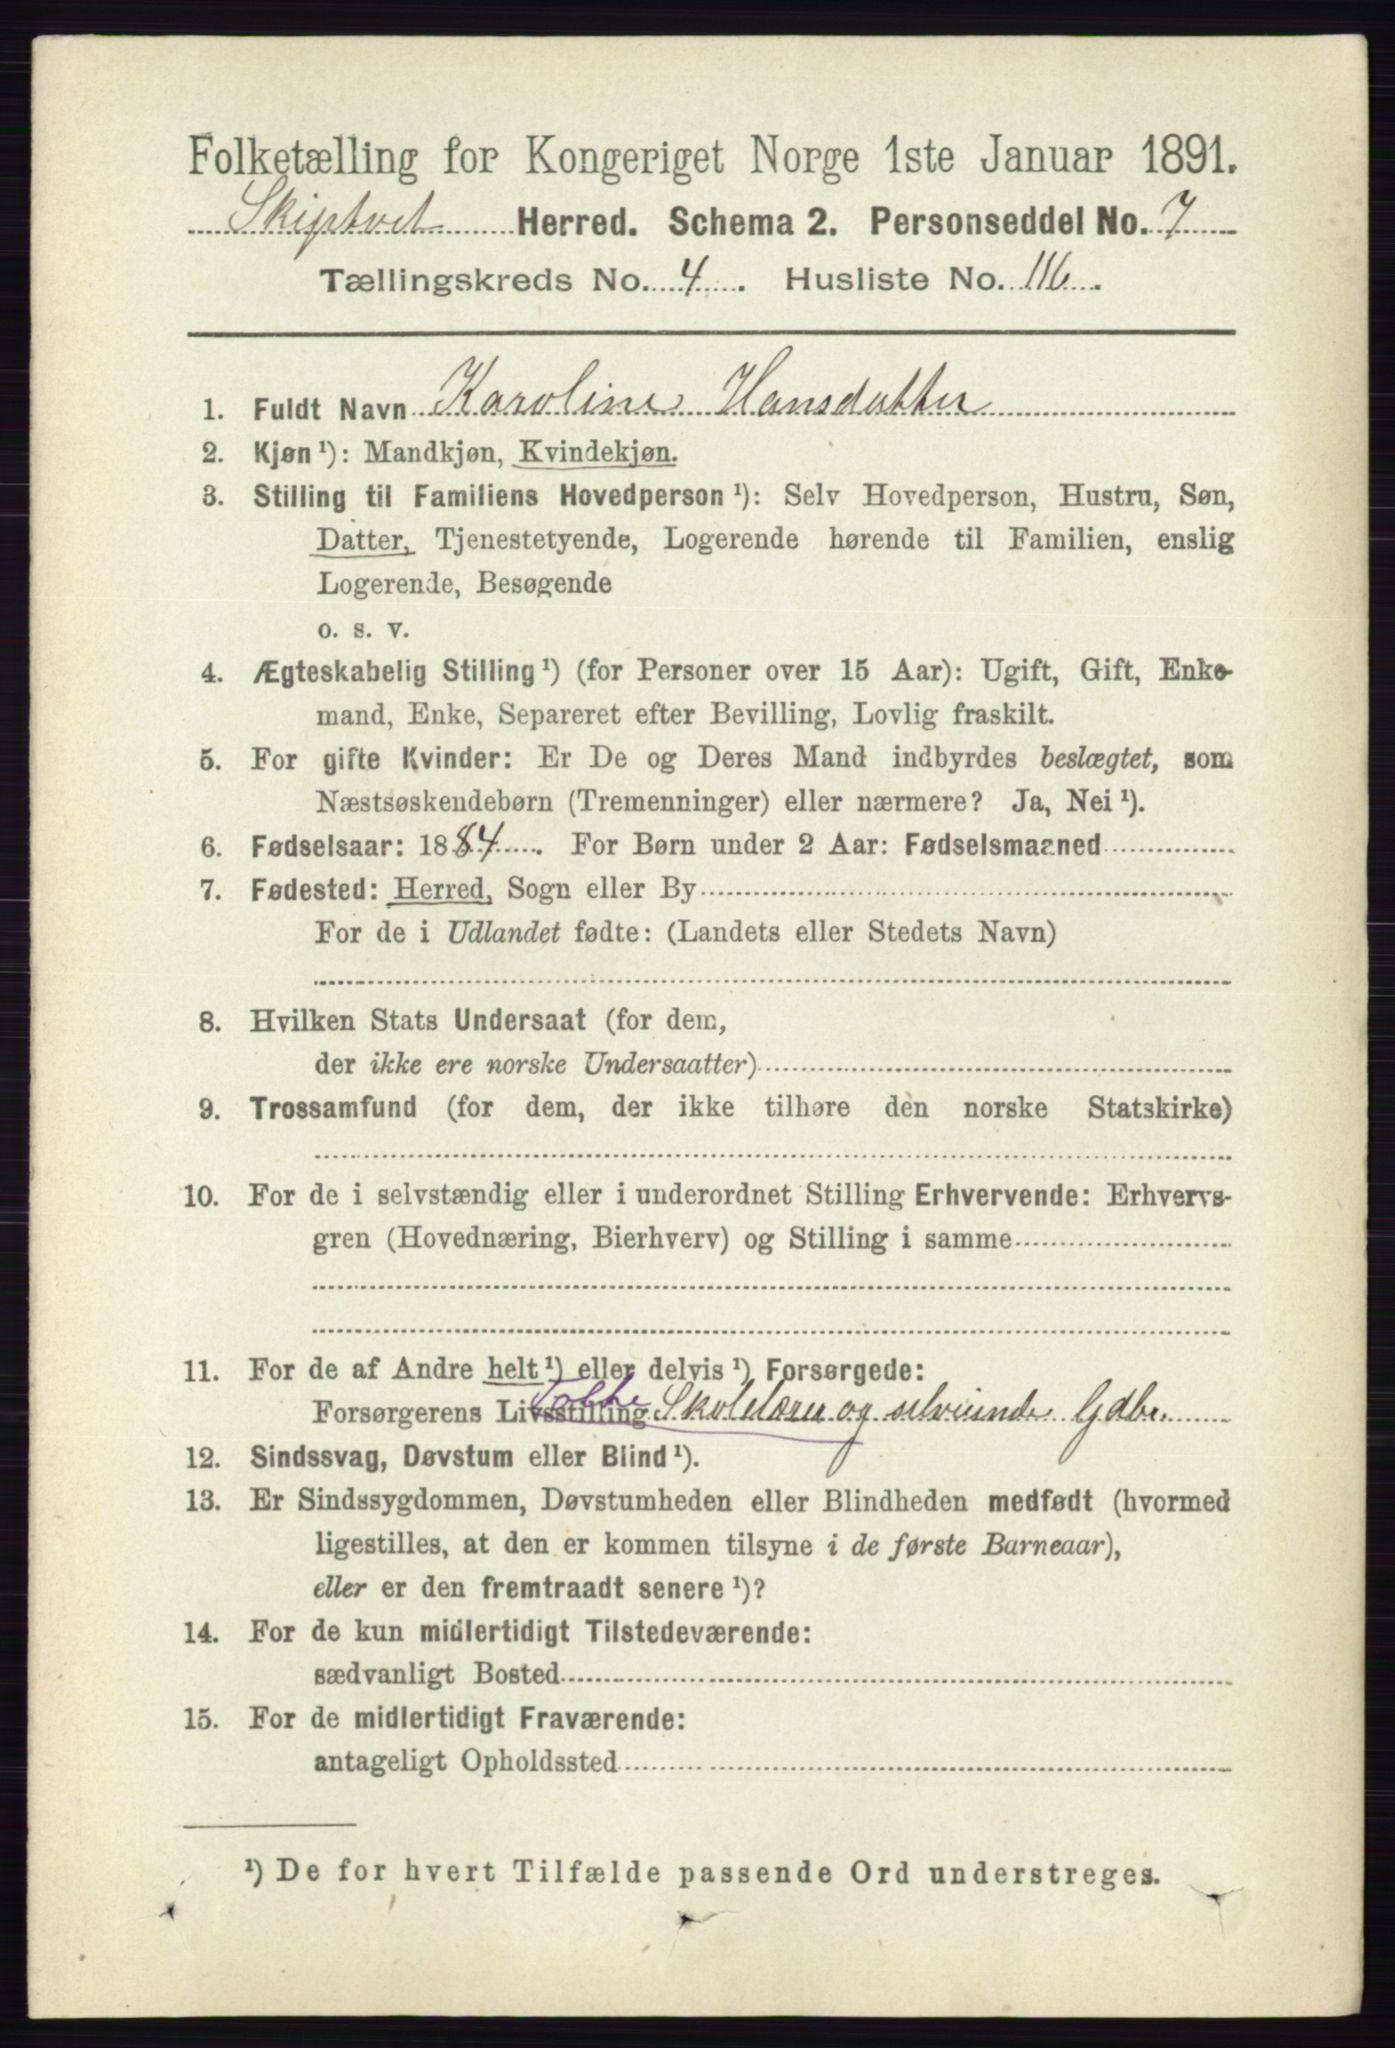 Folketælling for Kongeriget Norge 1ste Januar 1891.
Skiptvet Herred. Schema 2. Personseddel No. 7
Tællingskreds No. 4. Husliste No. 116.
1. Fuldt Navn Karoline Hansdatter
2. Kjøn ¹): Mandkjøn, Kvindekjøn.
3. Stilling til Familiens Hovedperson ¹): Selv Hovedperson, Hustru, Søn,
Datter, Tjenestetyende, Logerende hørende til Familien, enslig
Logerende, Besøgende
o. s. v.
4. Ægteskabelig Stilling ¹) (for Personer over 15 Aar): Ugift, Gift, Enke-
mand, Enke, Separeret efter Bevilling, Lovlig fraskilt.
5. For gifte Kvinder: Er De og Deres Mand indbyrdes beslægtet, som
Næstsøskendebørn (Tremenninger) eller nærmere? Ja, Nei ¹).
6. Fødselsaar: 1884. For Børn under 2 Aar: Fødselsmaaned
7. Fødested: Herred, Sogn eller By
For de i Udlandet fødte: (Landets eller Stedets Navn)
8. Hvilken Stats Undersaat (for dem,
der ikke ere norske Undersaatter)
9. Trossamfund (for dem, der ikke tilhøre den norske Statskirke)
10. For de i selvstændig eller i underordnet Stilling Erhvervende: Erhvervs-
gren (Hovednæring, Bierhverv) og Stilling i samme
11. For de af Andre helt ¹) eller delvis ¹) Forsørgede:
Forsørgerens Livsstilling Skolelærer og selveiende Gdbr.
12. Sindssvag, Døvstum eller Blind ¹).
13. Er Sindssygdommen, Døvstumheden eller Blindheden medfødt (hvormed
ligestilles, at den er kommen tilsyne i de første Barneaar),
eller er den fremtraadt senere ¹)?
14. For de kun midlertidigt Tilstedeværende:
sædvanligt Bosted
15. For de midlertidigt Fraværende:
antageligt Opholdssted
¹) De for hvert Tilfælde passende Ord understreges.